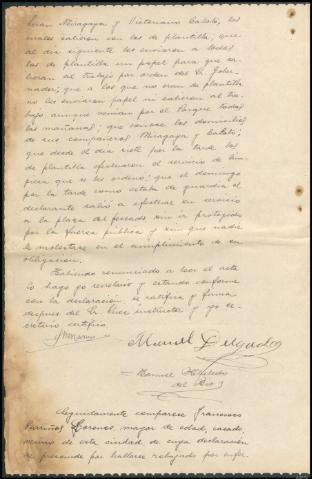 Miragaya y Victoriano Calvete, los
cuales salieron con los de plantilla; que
al dia siguiente les enviaron a todos
los de plantilla un papel para que sa-
lieran al trabajo por orden del Sr. Gober-
nador; que a los que no eran de plantilla
no les enviaron papel ni salieron al tra-
bajo aunque venian por el Parque todas
las mañanas; que conoce los domicilios
de sus compañeros Miragaya y
que desde el dia siete por la tarde los
de plantilla efectuaron el servicio de lim-
pieza que se les ordenó; que el domingo
por la tarde como estaba de guardia el
declarante salió a efectuar un servicio
a la plaza del ferrado sin ir protegidos
por la fuerza pública y sin que nadie
le molestase en el cumplimiento de su
obligación.
Habiendo renunciado a leer el acta
lo hago yo secretario y estando conforme
con la declaración se ratifica y firma
despues del Sr. Juez instructor y yo se-
cretario certifico.
Manuel Delgado
Manuel
del Rio
Seguidamente comparece Francisco
Lorenzo mayor de edad, casado,
vecino de esta ciudad de cuya declaración
se prescinde por hallarse rebajado por enfer-